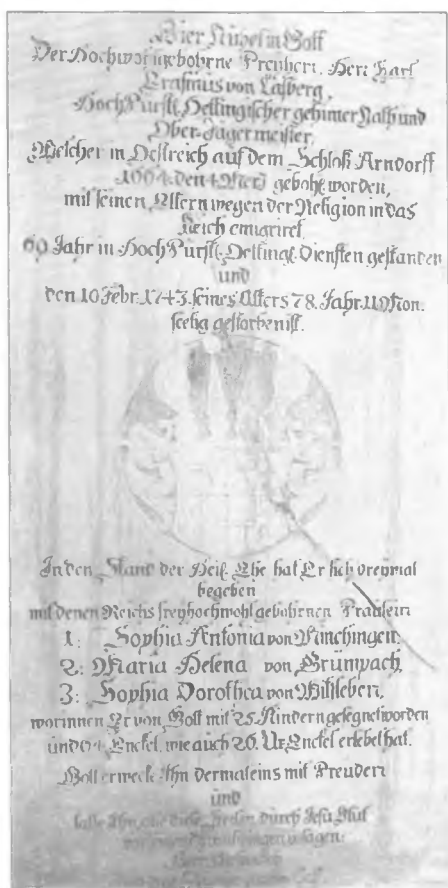 Hier Ruhet in Gott
Der Hochwolgebohrne Freyherr, Herr Karl
Erasmus von Lasberg,
HochFürstl. Oettingischer geheimer Rath und
Ober-Jägermeister,
Welcher in Oestreich auf dem Schloß Arndorff
1664. den 4 Merz gebohr worden,
mit seinen Eltern wegen der Religion in das
Reich emigriret,
69 Jahr in HochFürstl. Oetting. Diensten gestanden
und
den 10 Febr. 1743. seines Alters 78. Jahr. 11 Mon.
seelig gestorben ist.
In den Stand der Heil. Ehe hat Er sich dreymal
begeben
mit denen Reichs freyhochwohlgebohrnen Fraulein
1: Sophia Antonia von
2: Maria Helena von Grünwach,
3: Sophia Dorothea von Witsleben,
worinnen Er von Gott mit 25. Kindern gesegnet worden
und 64. Enckel, wie auch 26. Ur Enckel erlebet hat.
Gott erwecke Ihn dermaleins mit Freuden
und
lasse Ihn, durch Jesu Blut